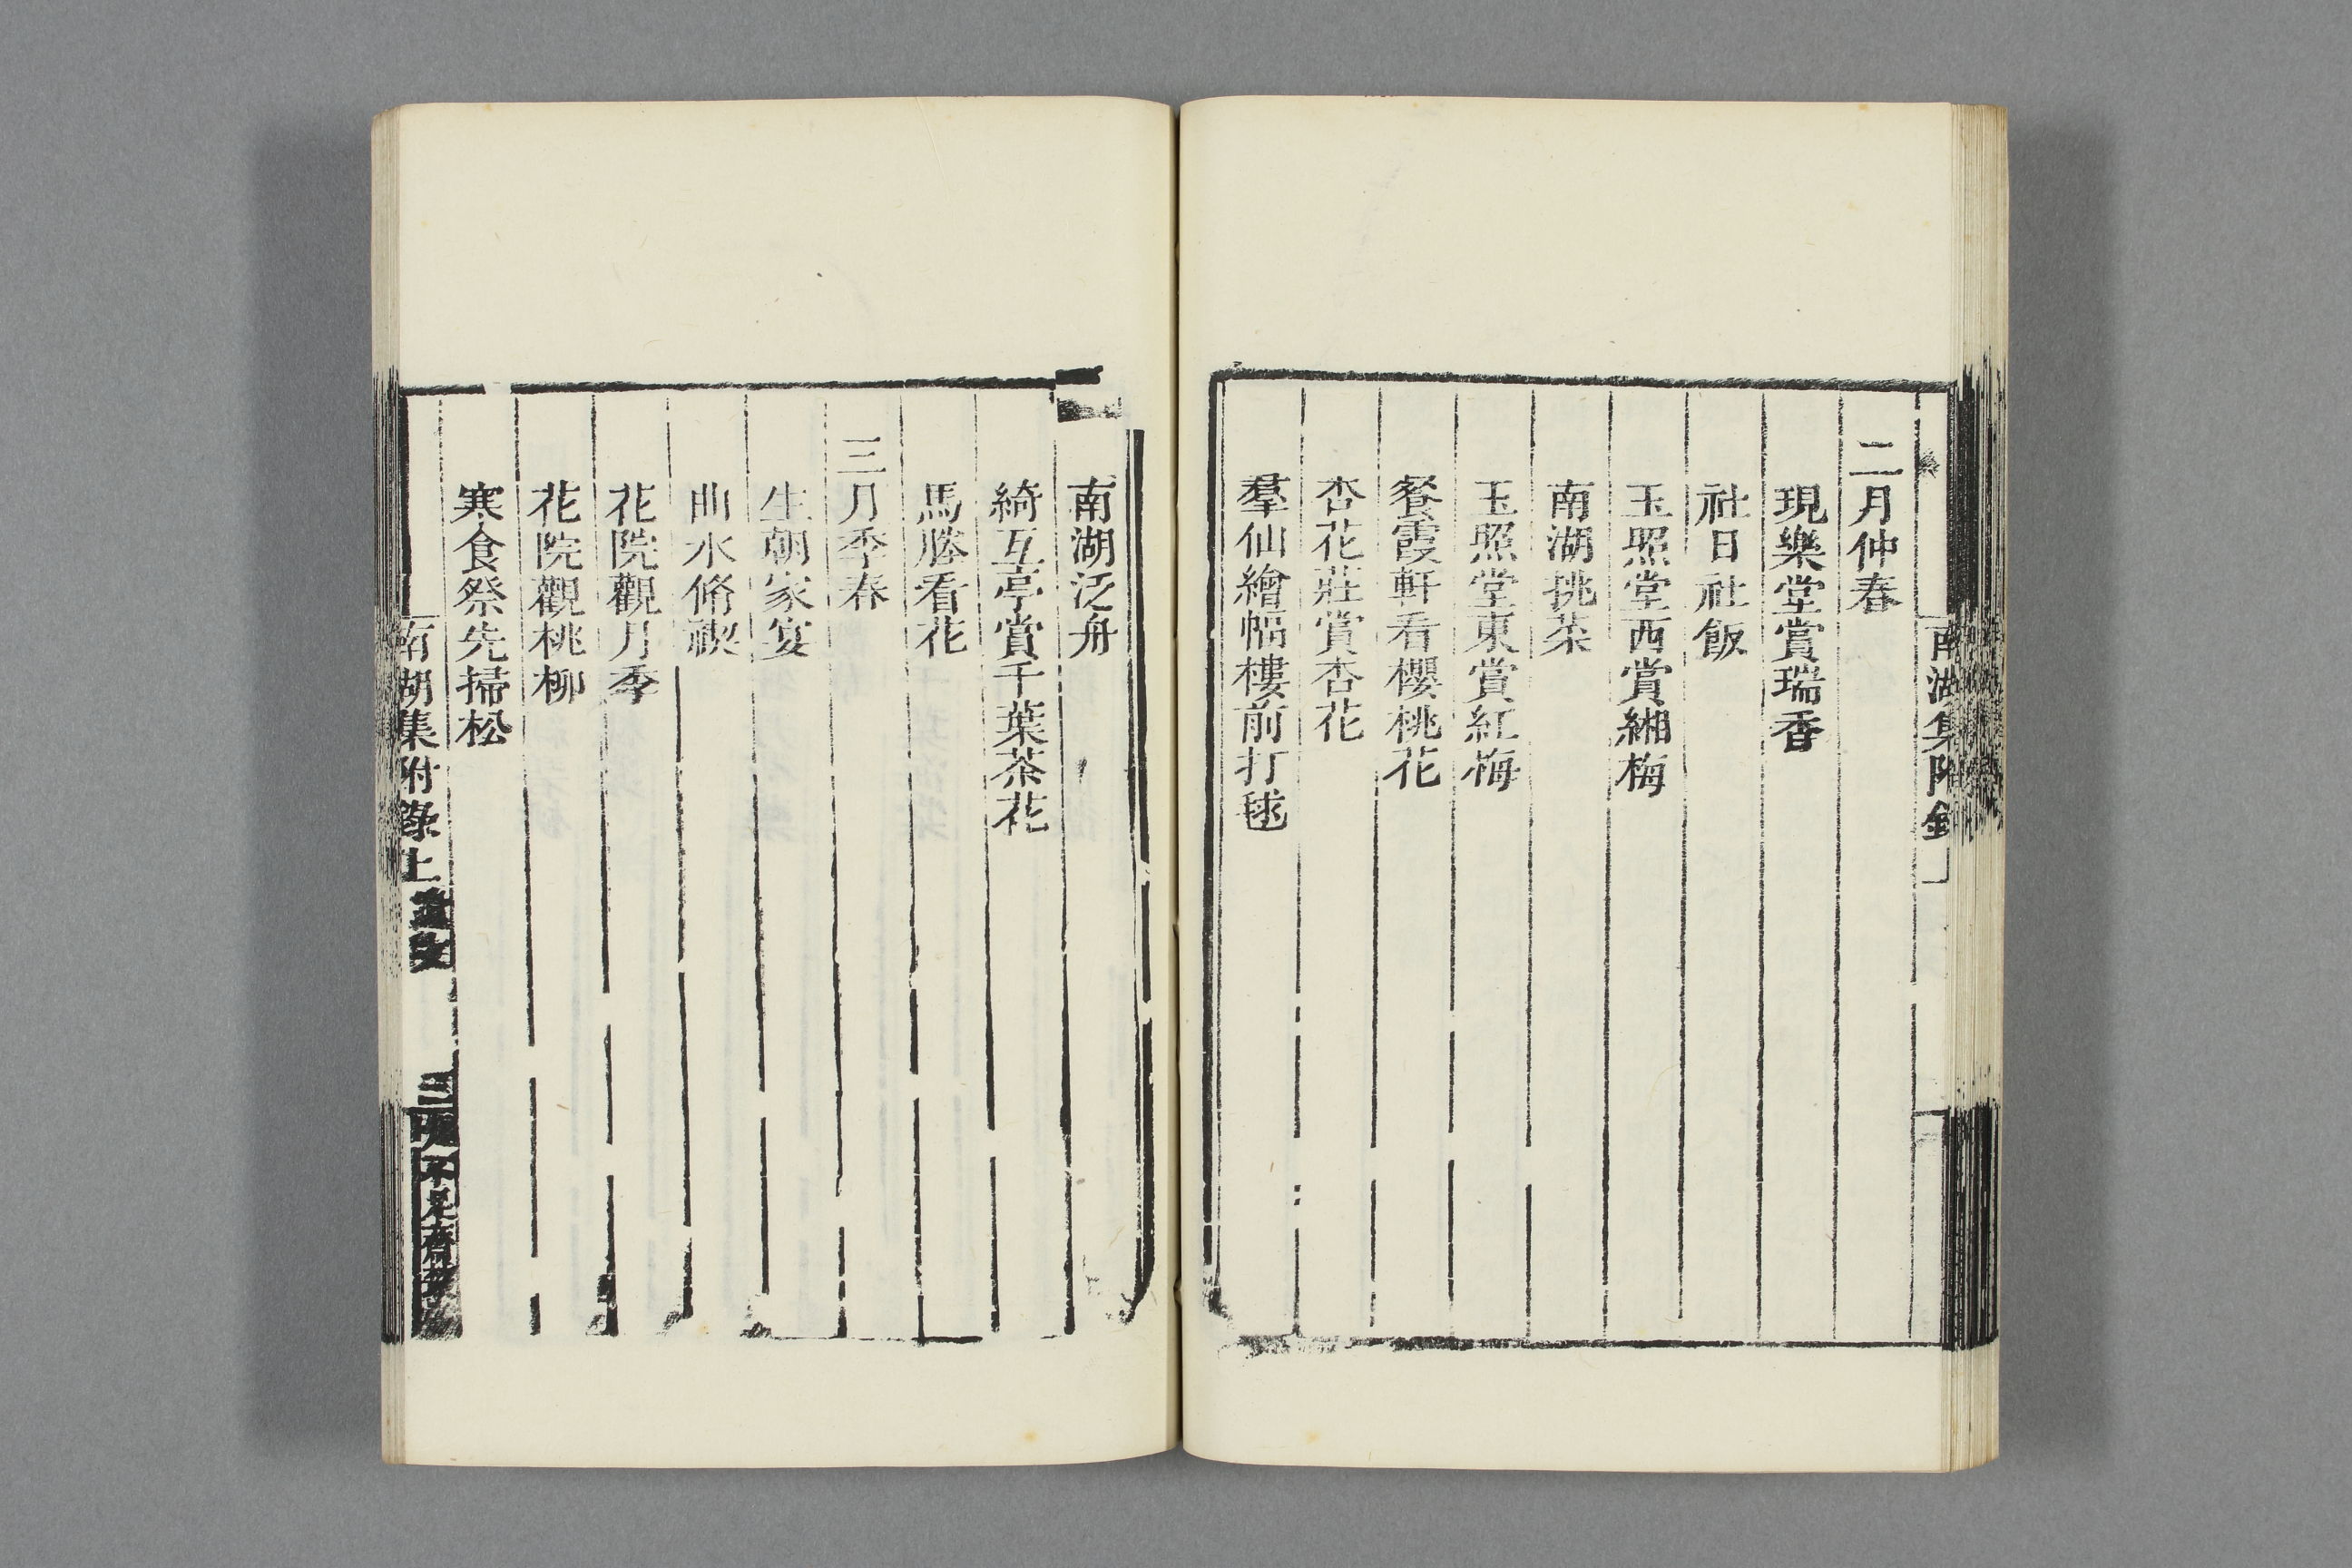 南湖集附錄
二月仲春
現樂堂賞瑞香
社日社飯
玉照堂西賞緗梅
南湖挑菜
玉照堂東賞紅梅
餐霞軒看櫻桃花
杏花莊賞杏花
羣仙繪幅樓前打毬
南湖泛舟
綺互亭賞千葉茶花
馬塍看花
三月季春
生朝家宴
曲水脩禊
花院觀月季
花院觀桃柳
寒食祭先掃松
南湖集附錄上
遺文
不足齋